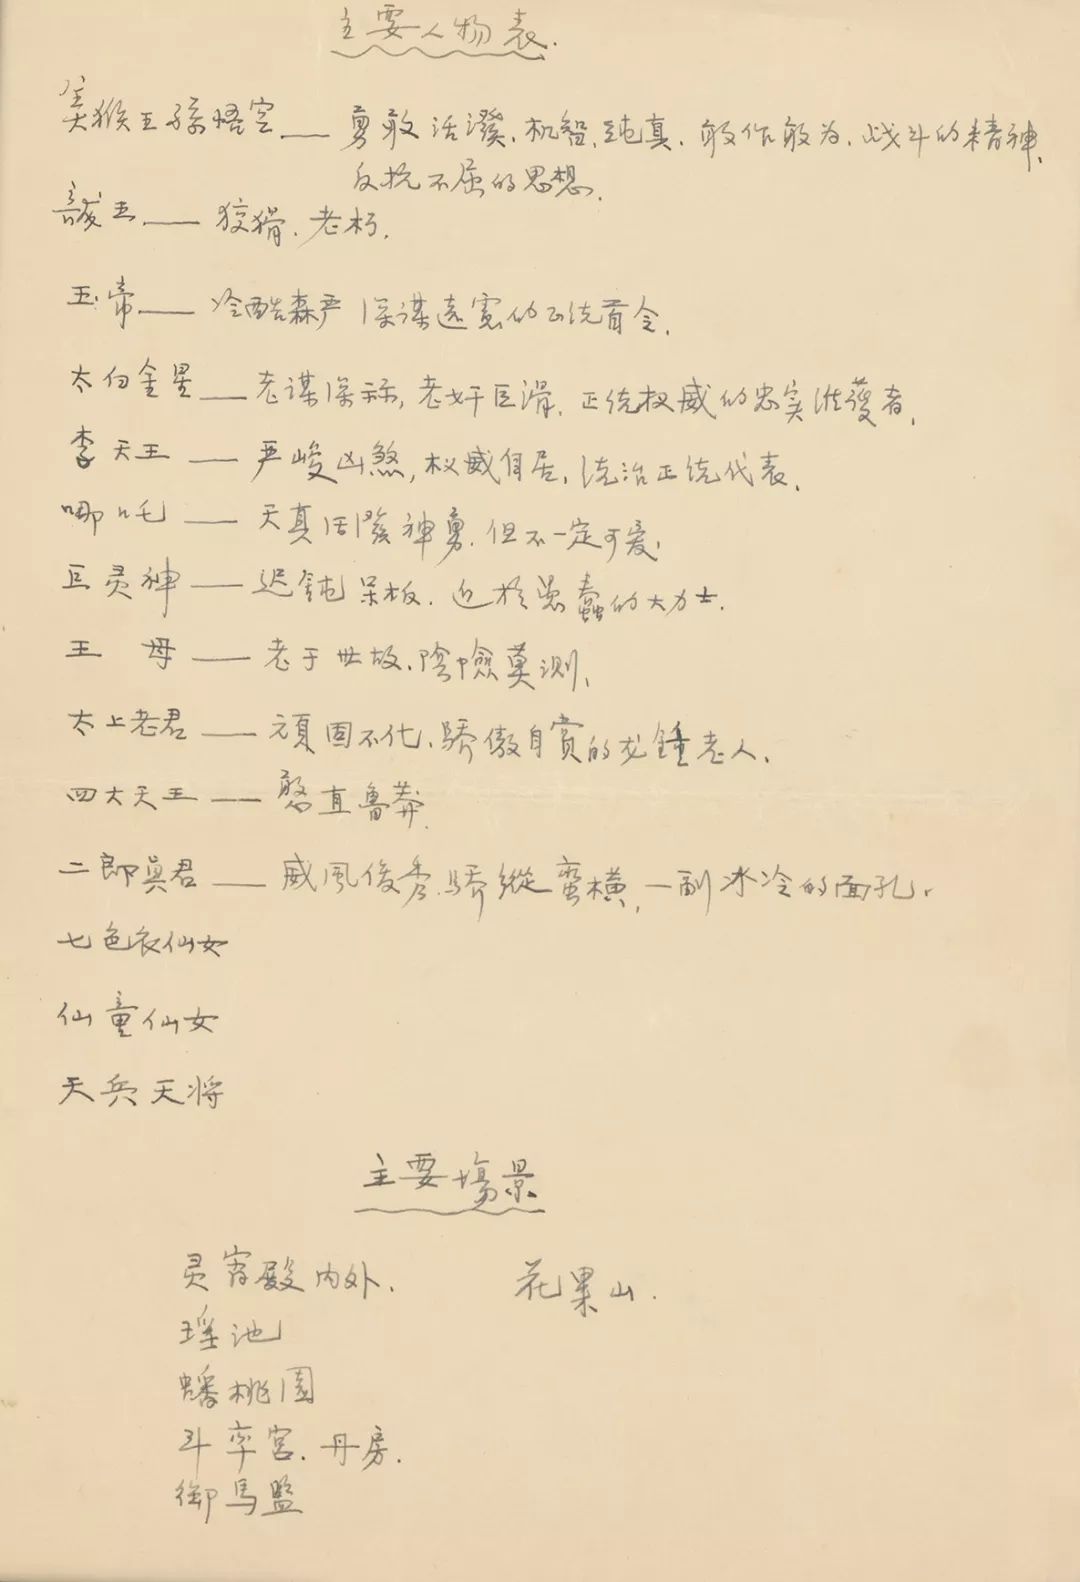 主要人物表.
美猴王孫悟空——勇敢活潑、机智、純真、敢作敢为、战斗的精神、
反抗不屈的思想、
王——狡猾、老朽、
玉帝——冷酷森严 深謀遠慮的正统首令、
太白金星——老謀深祘, 老奸巨滑、正统权威的忠实维護者、
李天王——严峻凶煞, 权威自居, 统治正统代表、
哪吒——天真活潑神勇、但不一定可爱、
巨灵神——迟鈍呆板、近於愚蠢的大力士、
王 母——老于世故、陰險莫测、
太上老君——頑固不化、驕傲自賞的龙鍾老人、
四大天王——憨直魯莽、
二郎真君——威風俊秀、驕縱蛮横、一副冰冷的面孔、
七色衣仙女
仙童仙女
天兵天将
主要場景
灵宵殿内外、 花果山.
瑶池
蟠桃園
斗率宮、丹房、
御馬監